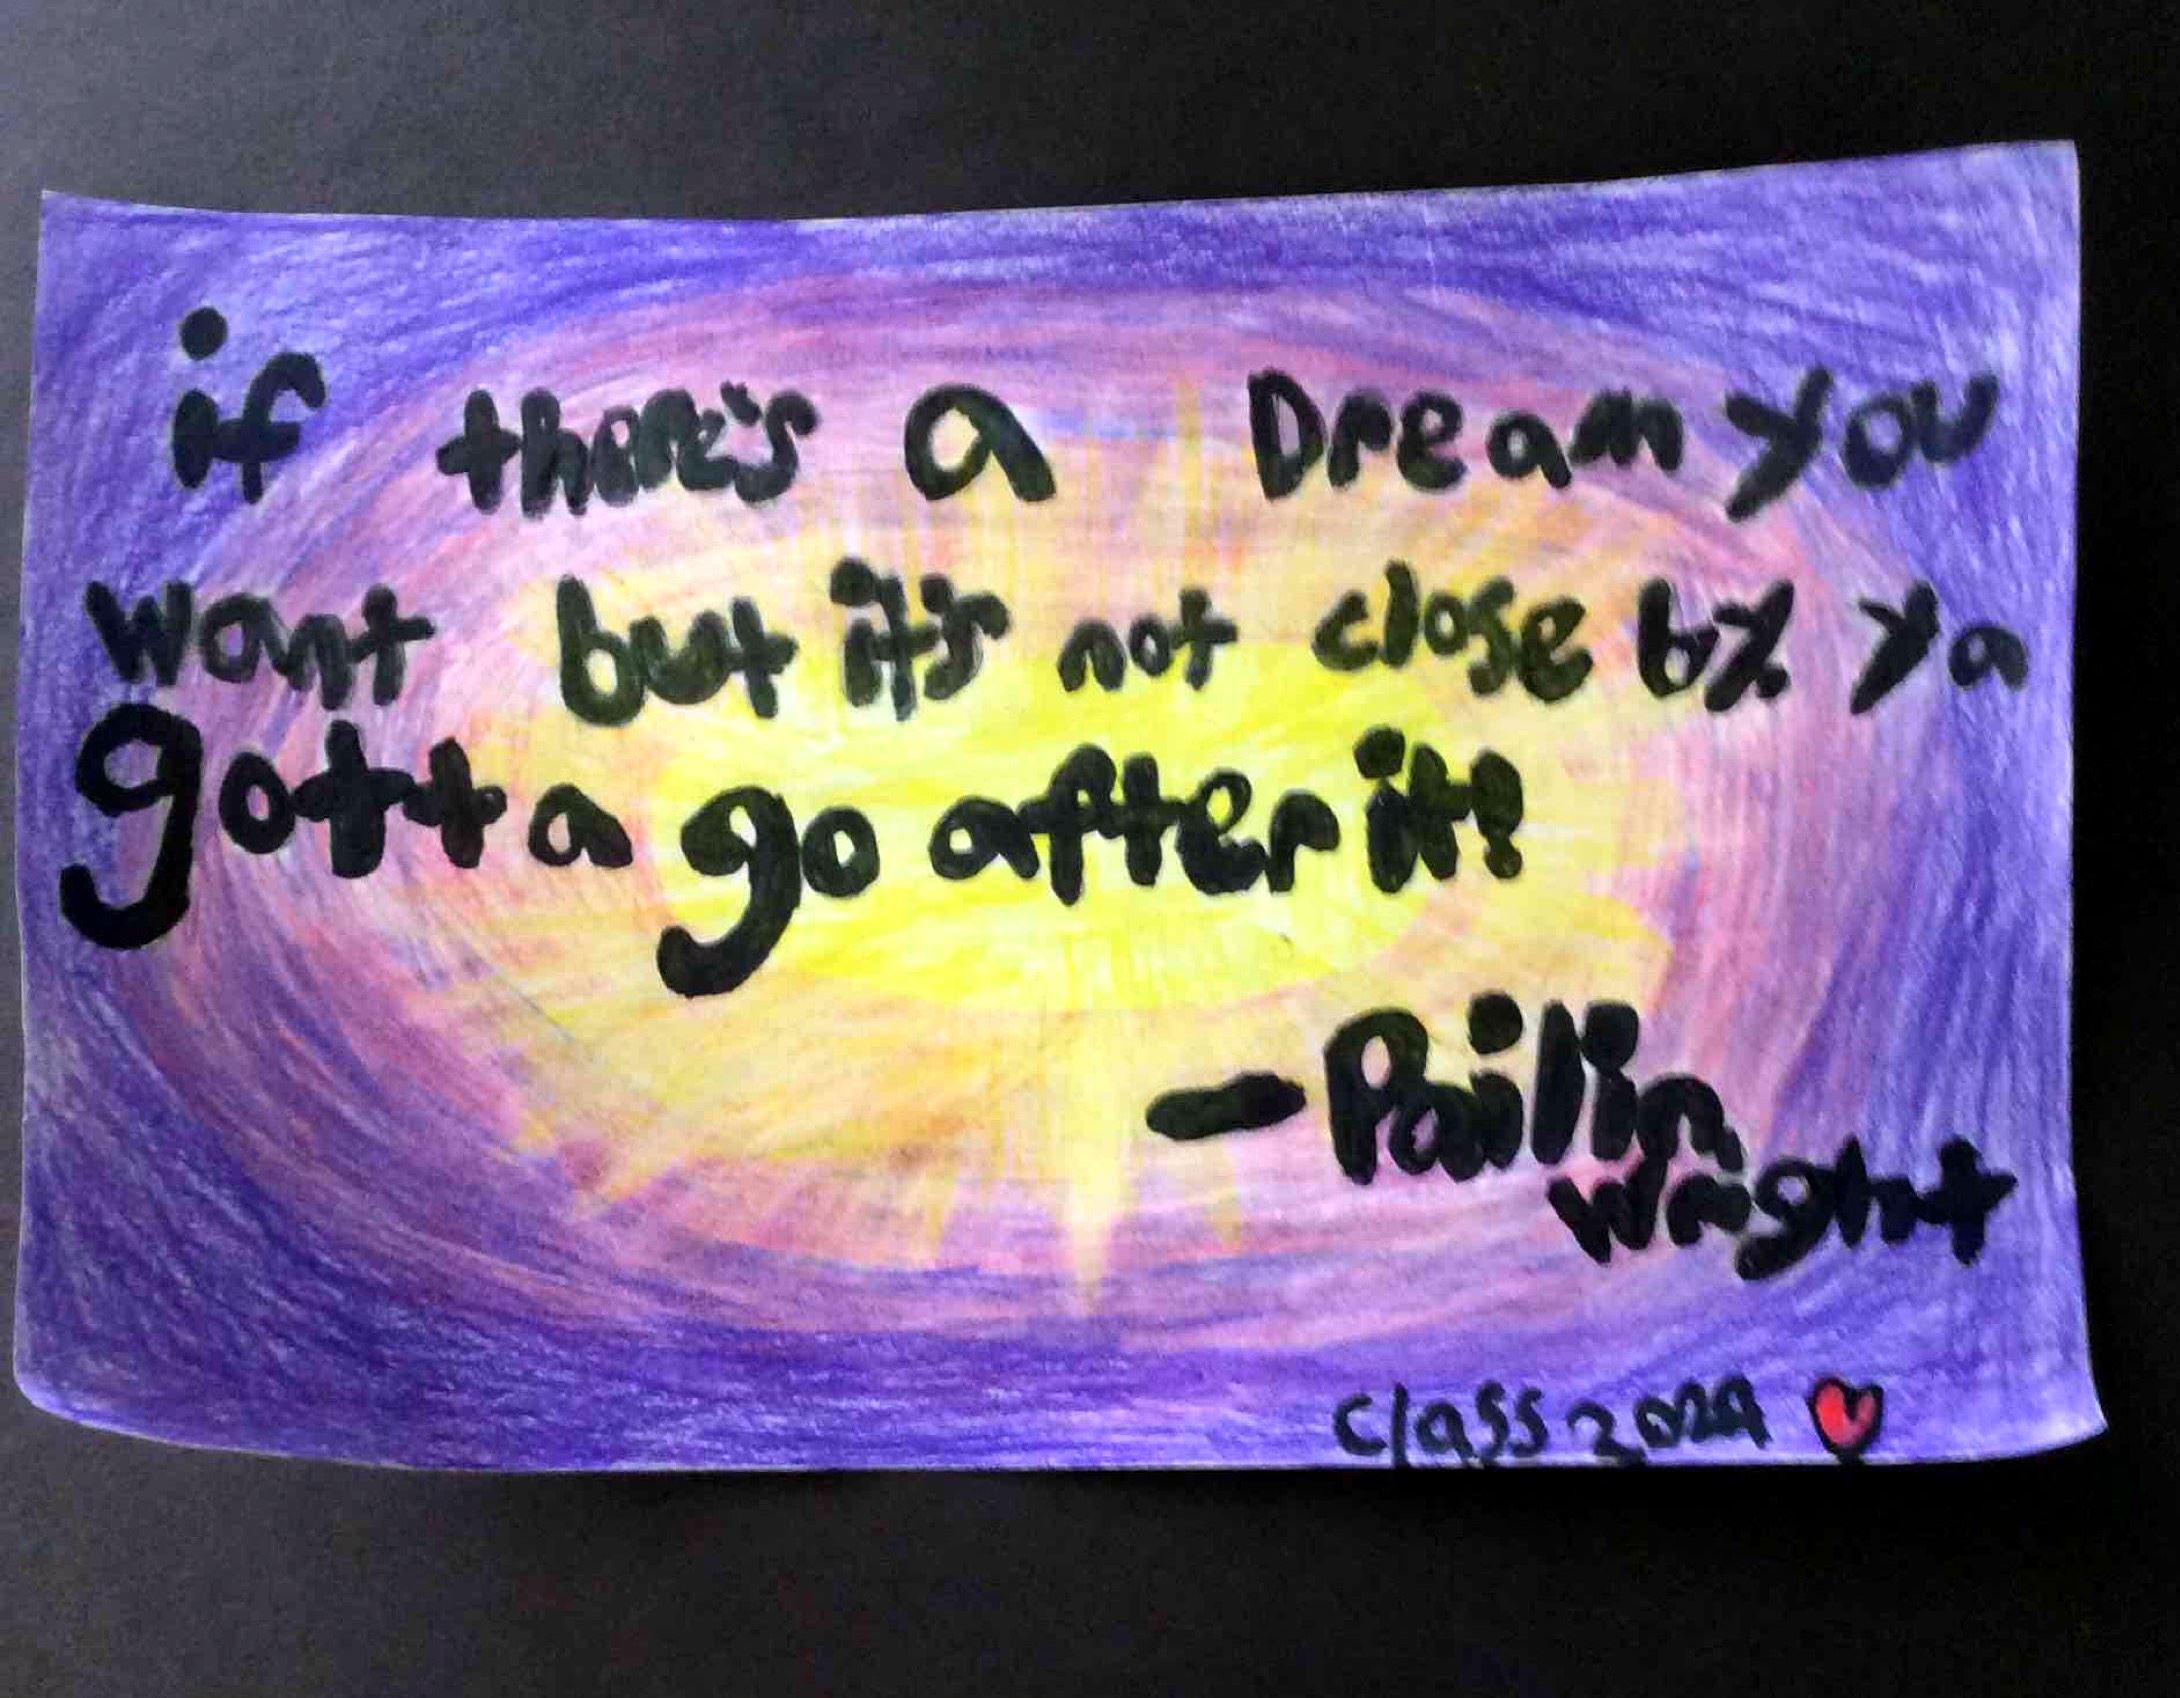 if there's a Dream you
want but it's not close by ya
gotta go after it!
- Pailin
Wright
class 2029